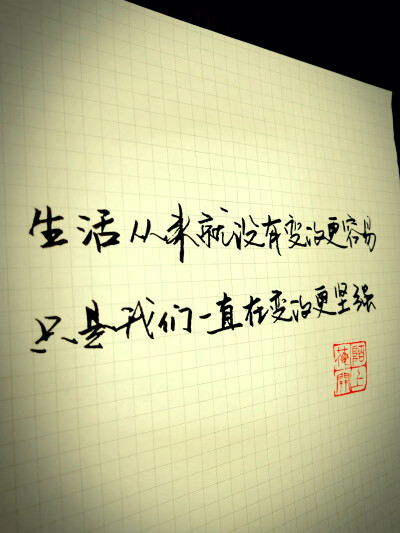 生活从来就没有变得更容易
只是我们一直在变得更坚强
陌上花開